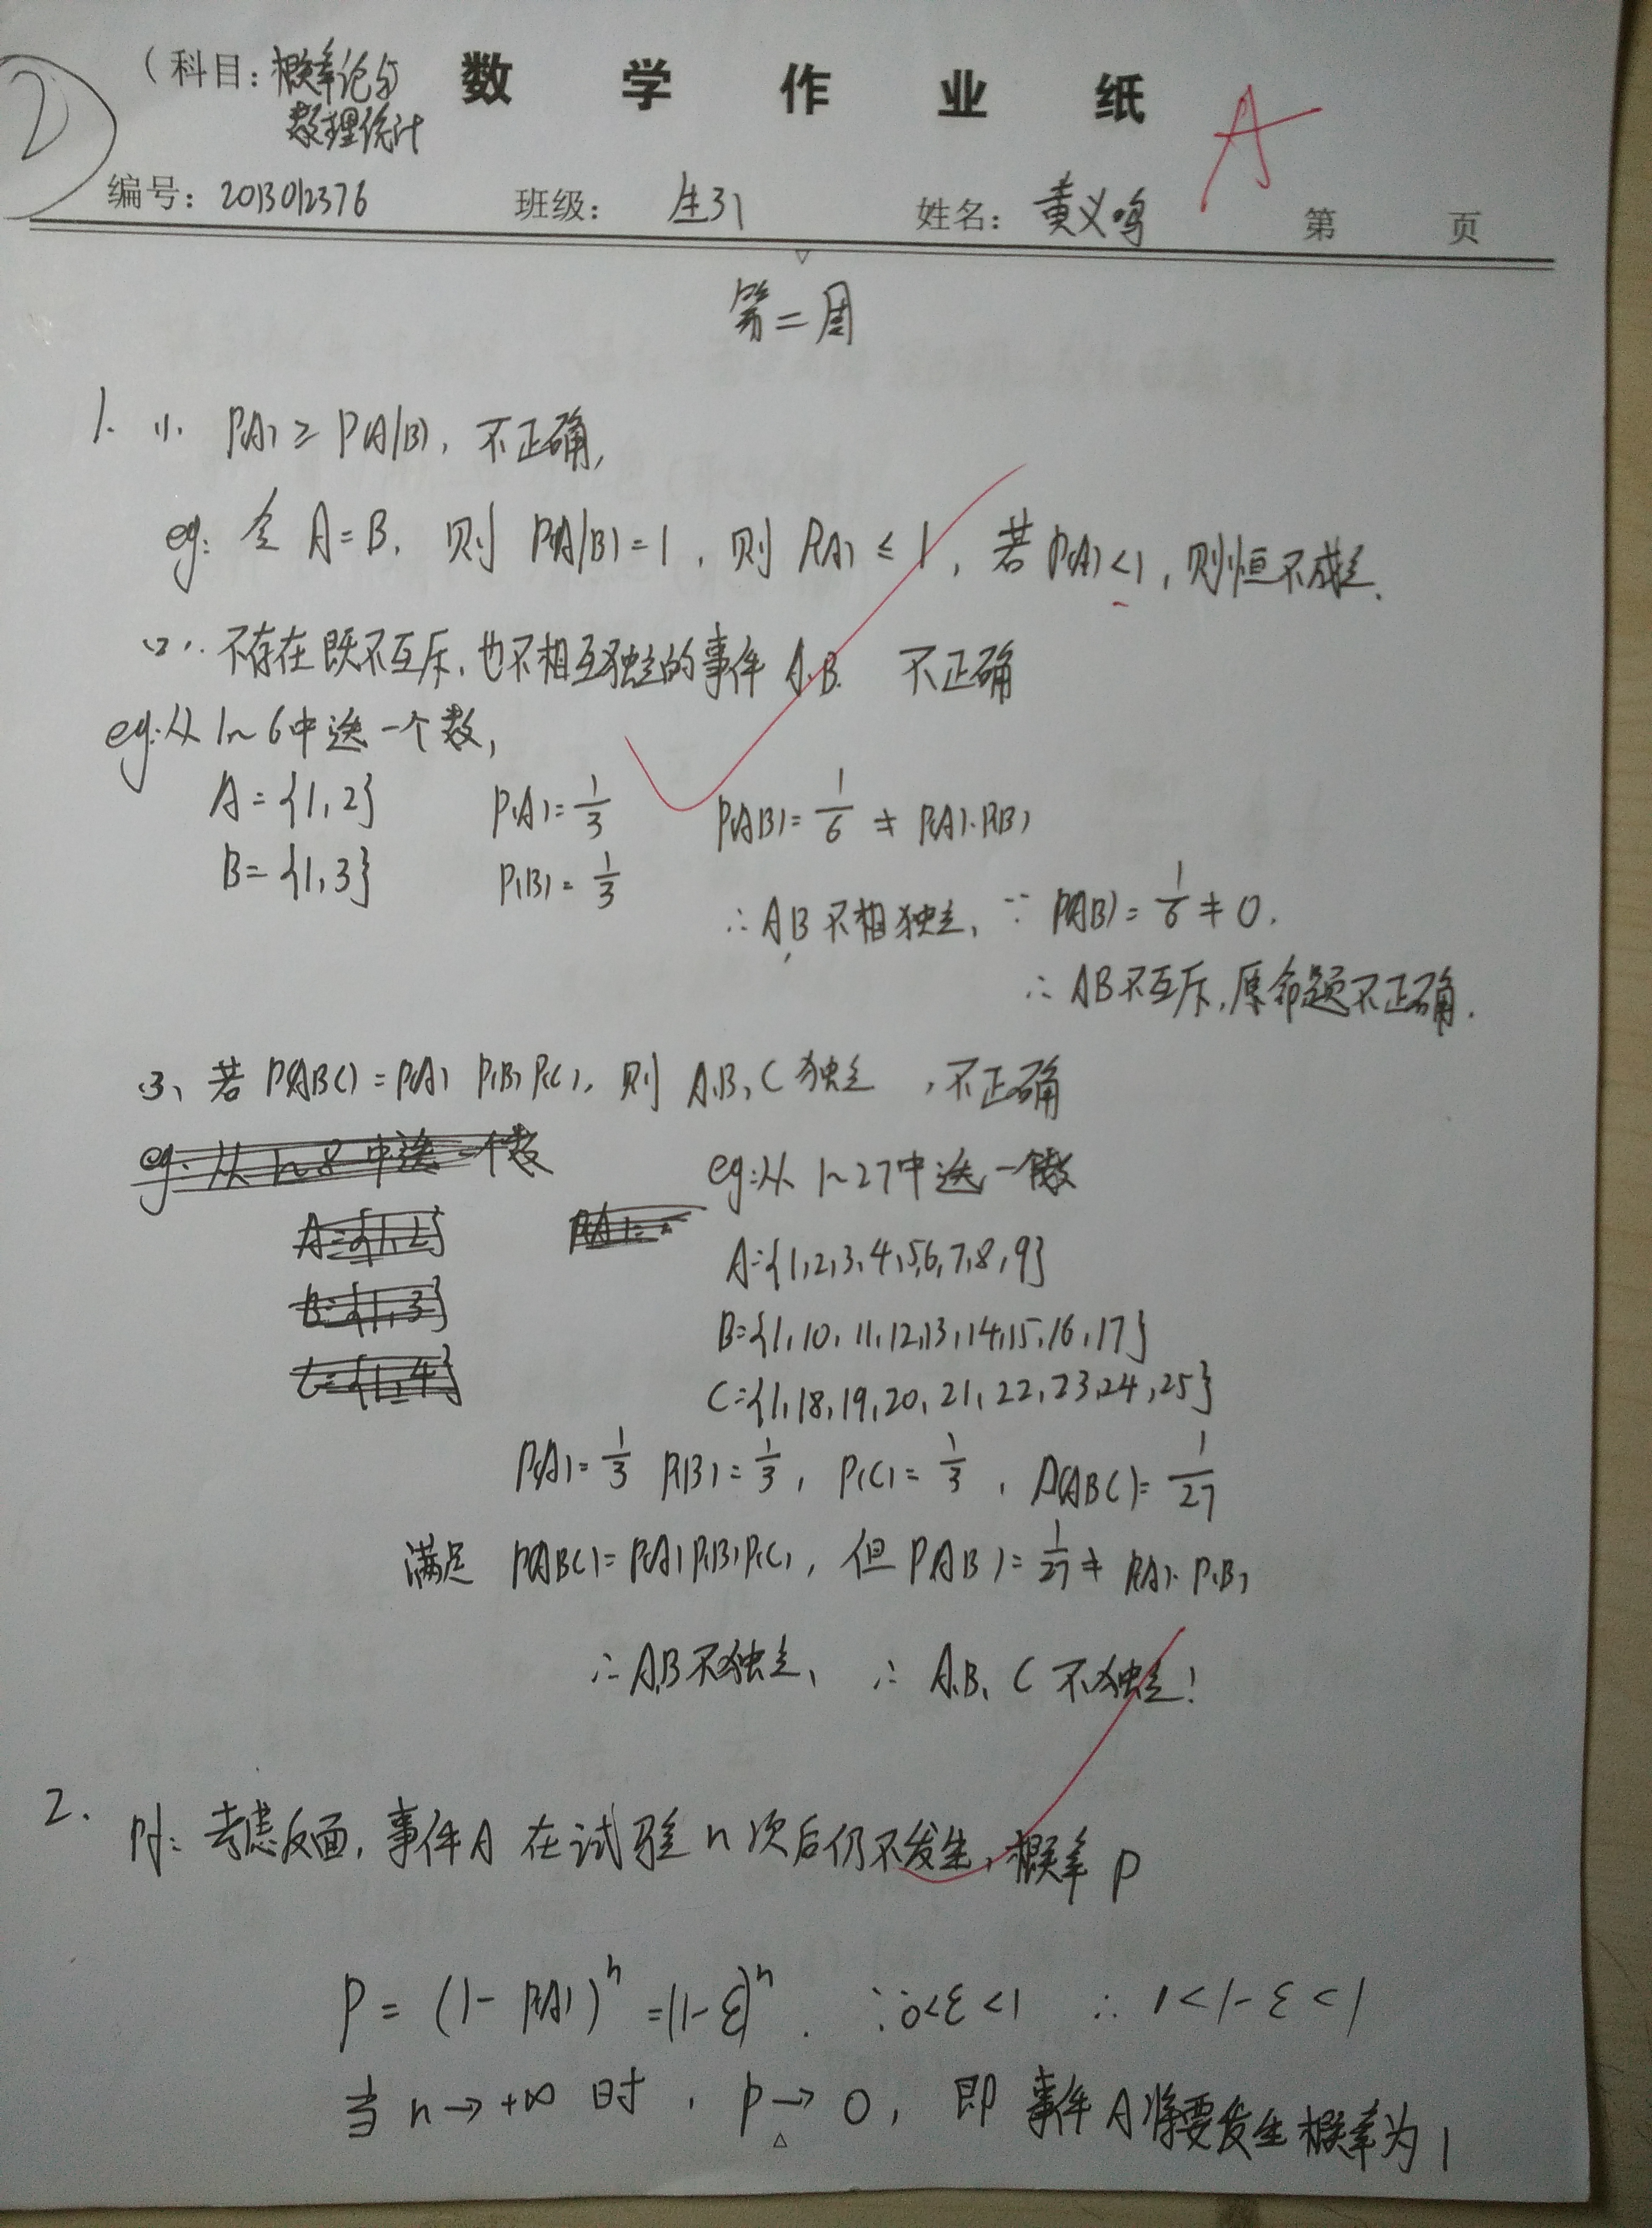 ②
（科目：概率论与 数学作业纸
数理统计
A
编号：2013012376 班级：生31 姓名：黄义鸣 第 页
第二周
1. (1). P(A) ≥ P(A|B), 不正确,
eg: 令 A=B, 则 P(A|B)=1, 则 P(A) ≤ 1, 若 P(A)<1, 则恒不成立.
(2). 不存在既不互斥,也不相互独立的事件 A,B. 不正确
eg:从 1~6中选一个数,
A={1,2} P(A)=1/3 P(AB)=1/6 ≠ P(A)·P(B)
B={1,3} P(B)=1/3
∴AB不相独立, ∵ P(AB)=1/6≠0.
∴AB不互斥,原命题不正确.
(3) 若 P(ABC)=P(A) P(B) P(C), 则 A,B,C 独立, 不正确
eg:从 1~8 中选一个数 eg:从 1~27中选一个数
A={1,2} P(A)=
A={1,2,3,4,5,6,7,8,9}
B={1,3}
B={1,10,11,12,13,14,15,16,17}
C={1,4}
C={1,18,19,20,21,22,23,24,25}
P(A)=1/3 P(B)=1/3, P(C)=1/3, P(ABC)=1/27
满足 P(ABC)=P(A)P(B)P(C), 但 P(AB)=1/27≠ P(A)·P(B)
∴A,B不独立, ∴ A,B,C 不独立!
2. pf: 考虑反面,事件A 在试验 n 次后仍不发生,概率 p
P = (1-P(A))^n =(1-ε)^n. ∵0<ε<1 ∴ 1<1-ε<1
当 n→+∞ 时, p→0, 即 事件A将要发生概率为1